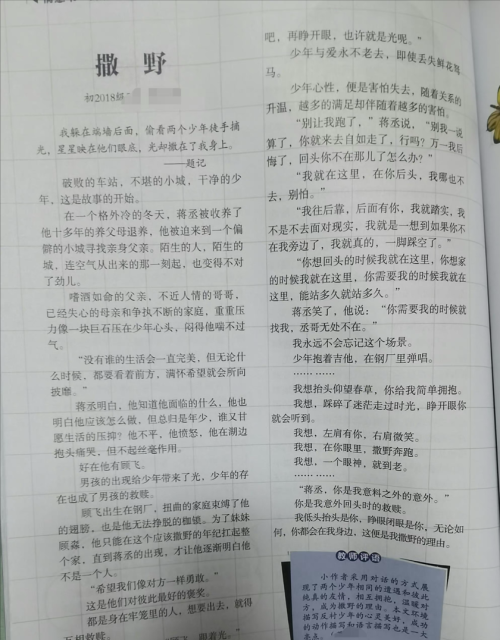 撒 野
初2018级
我躲在墙后面，偷看两个少年徒手摘
光，星星映在他们眼底，光却撒在了我身上。
——题记
破败的车站，不堪的小城，干净的少
年，这是故事的开始。
在一个格外冷的冬天，蒋丞被收养了
他十多年的养父母退养，他被迫来到一个偏
僻的小城寻找亲身父亲。陌生的人，陌生的
城，连空气从出来的那一刻起，也变得不对
了劲儿。
嗜酒如命的父亲，不近人情的哥哥，
已经失心的母亲和争执不断的家庭，重重压
力像一块巨石压在少年心头，闷得他喘不过
气。
“没有谁的生活会一直完美，但无论什
么时候，都要看着前方，满怀希望就会所向
披靡。”
蒋丞明白，他知道他面临的什么，他也
明白他应该怎么做，但总归是年少，谁又甘
愿生活的压抑？他不平，他愤怒，他在湖边
抱头痛哭，但不起丝毫作用。
好在他有顾飞。
男孩的出现给少年带来了光，少年的存
在也成了男孩的救赎。
顾飞出生在钢厂，扭曲的家庭束缚了他
的翅膀，也是他无法挣脱的枷锁。为了妹妹
顾淼，他只能在这个应该撒野的年纪扛起整
个家，直到蒋丞的出现，才让他逐渐明白他
不是一个人。
“希望我们像对方一样勇敢。”
这是他们对彼此最好的褒奖。
都是身在牢笼里的人，想要出去，就得
互相救赎。
吧，再睁开眼，也许就是光呢。”
少年与爱永不老去，即使丢失鲜花怒
马。
少年心性，便是害怕失去，随着关系的
升温，越多的满足却伴随着越多的害怕。
“别让我跑了，”蒋丞说，“别我一说
算了，你就来去自如走了，行吗？万一我后
悔了，回头你不在那儿了怎么办？”
“我就在这里，在你后头，我哪也不
去，别怕。”
“我往后靠，后面有你，我就踏实，我
不是不去面对现实，我就是一想到如果你不
在我旁边了，我就真的，一脚踩空了。”
“你想回头的时候我就在这里，你想家
的时候我就在这里，你需要我的时候我就在
这里，能站多久就站多久。”
蒋丞笑了，他说：“你需要我的时候就
找我，丞哥无处不在。”
我永远不会忘记这个场景。
少年抱着吉他，在钢厂里弹唱。
……  ……
我想抬头仰望春草，你给我简单拥抱。
我想，踩碎了迷茫走过时光，睁开眼你
就会听到。
我想，左肩有你，右肩微笑。
我想，在你眼里，撒野奔跑。
我想，一个眼神，就到老。
……  ……
“蒋丞，你是我意料之外的意外。”
你是我意外回头时的救赎。
我低头抬头是你，睁眼闭眼是你，无论如
何，你都会在我身边，这便是我撒野的理由。
教师评语
小作者采用对话的方式展
现了两个少年相同的遭遇和彼此